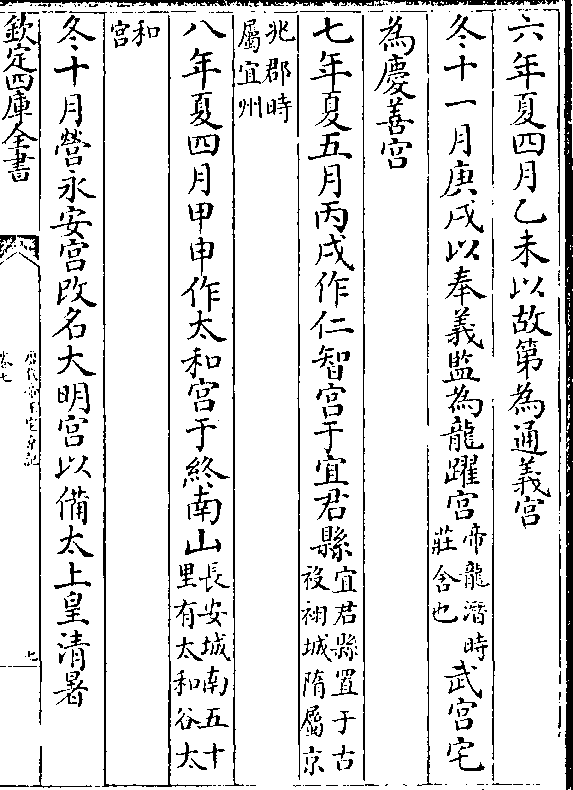 六年夏四月乙未以故第為通義宮
冬十一月庚戌以奉義監為龍躍宮帝龍潛時
莊舍也武宮宅
為慶善宮
七年夏五月丙戌作仁智宮于宜君縣宜君縣置于古
祋祤城隋屬京
兆郡時
屬宜州
八年夏四月甲申作太和宮于終南山長安城南五十
里有太和谷太
和
宮
冬十月營永安宮改名大明宮以備太上皇清暑
欽定四庫全書
卷七
七